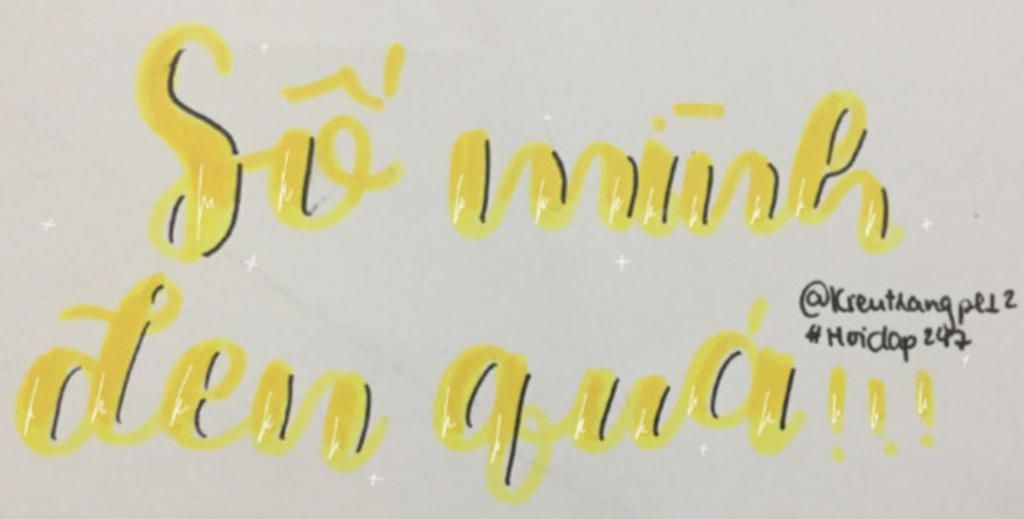 Số mình
đen quá!!!
@Kieuthangpl12
#Hoidap247